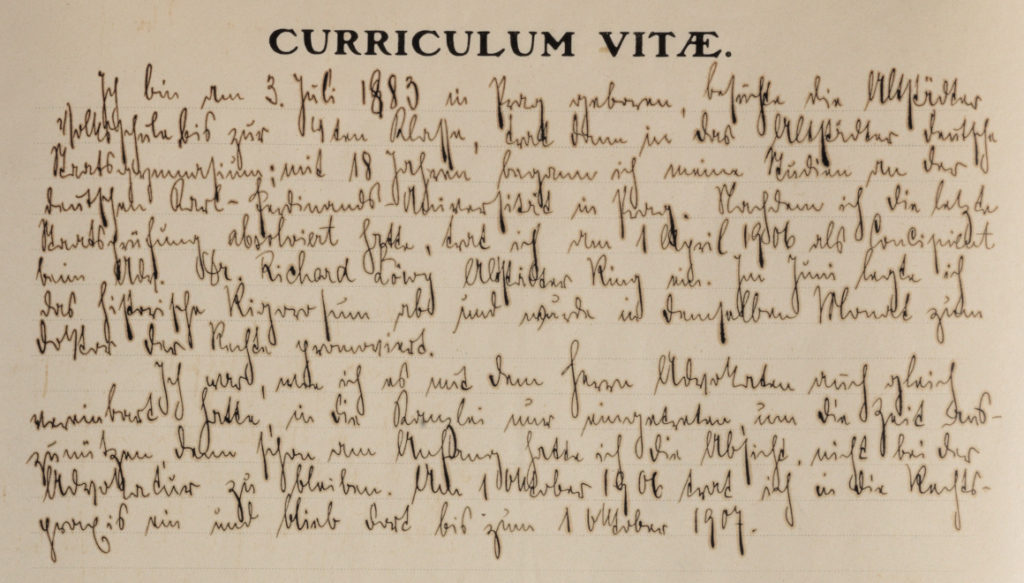 CURRICULUM VITÆ.
Ich bin am 3. Juli 1883 in Prag geboren, besuchte die Altstädter
Volksschule bis zur 4ten Klasse, trat dann in das Altstädter deutsche
Staatsgymnasium; mit 18 Jahren begann ich meine Studien an der
deutschen Karl-Ferdinands-Universität in Prag. Nachdem ich die letzte
Staatsprüfung absolviert hatte, trat ich am 1 April 1906 als Concipient
beim Adv. Dr. Richard Löwy Altstädter Ring ein. Im Juni legte ich
das historische Rigorosum ab und wurde in demselben Monat zum
Doktor der Rechte promoviert.
Ich war, wie ich es mit dem Herrn Advokaten auch gleich
vereinbart hatte, in die Kanzlei nur eingetreten, um die Zeit aus-
zunützen, denn schon am Anfang hatte ich die Absicht, nicht bei der
Advokatur zu bleiben. Am 1 Oktober 1906 trat ich in die Rechts-
praxis ein und blieb dort bis zum 1 Oktober 1907.